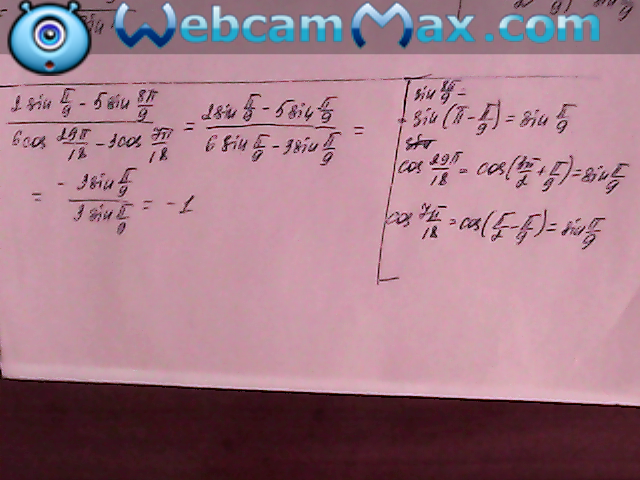 WebcamMax.com
(2 sin π/9 − 5 sin 8π/9) / (6 cos 29π/18 − 3 cos 7π/18) = (2 sin π/9 − 5 sin π/9) / (6 sin π/9 − 3 sin π/9) =
= (−3 sin π/9) / (3 sin π/9) = −1
sin 8π/9 =
= sin(π − π/9) = sin π/9
cos 29π/18 = cos(3π/2 + π/9) = sin π/9
cos 7π/18 = cos(π/2 − π/9) = sin π/9